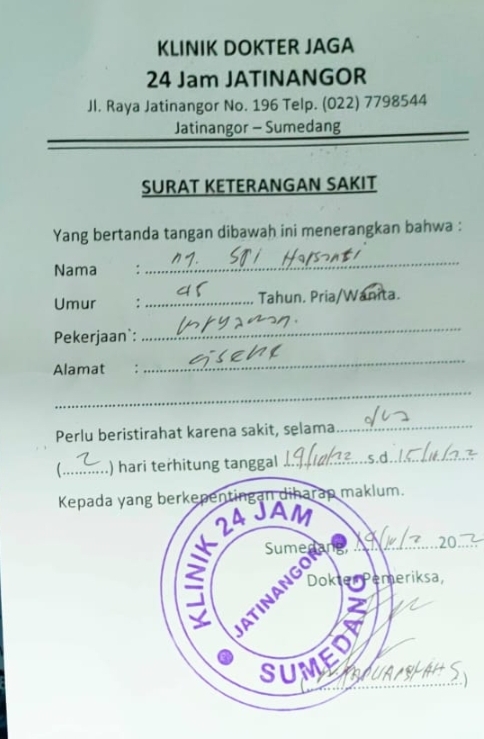 KLINIK DOKTER JAGA
24 Jam JATINANGOR
Jl. Raya Jatinangor No. 196 Telp. (022) 7798544
Jatinangor – Sumedang
SURAT KETERANGAN SAKIT
Yang bertanda tangan dibawah ini menerangkan bahwa :
Nama : Sri Harsanti
Umur : Tahun. Pria/Wanita.
Pekerjaan :
Alamat :
Perlu beristirahat karena sakit, selama dua
(2) hari terhitung tanggal s.d.
Kepada yang berkepentingan diharap maklum.
Sumedang, 20
Dokter Pemeriksa,
KLINIK 24 JAM
JATINANGOR
SUMEDANG